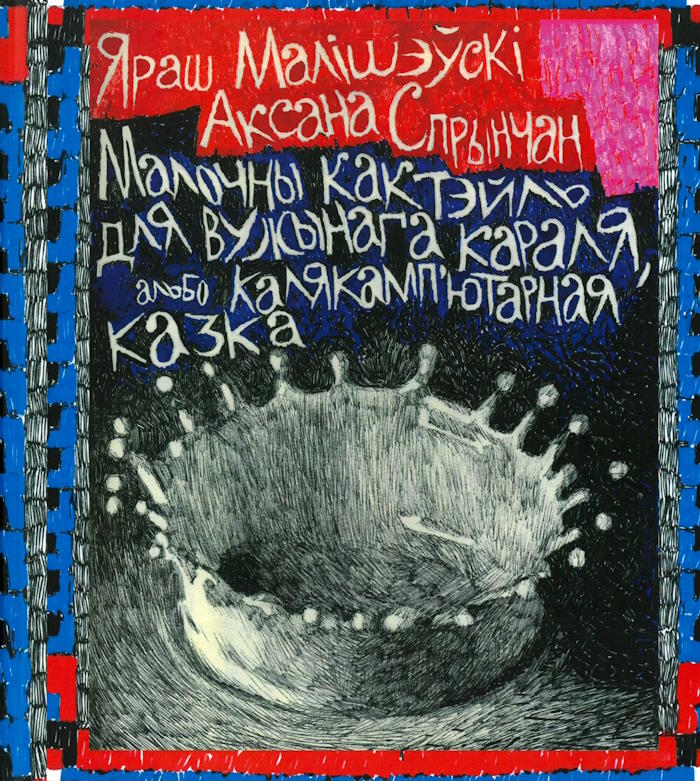 Яраш Малішэўскі
Аксана Спрынчан
Малочны кактэйль
для вужынага караля,
альбо калякамп'ютарная
казка